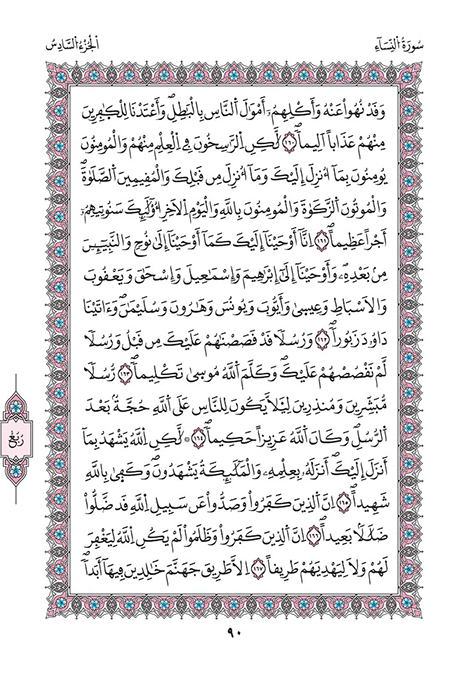 سُورَةُ النِّسَاءِ
الجُزْءُ السَّادِسُ
وَقَدْ نُهُواْ عَنْهُ وَأَكْلِهِمُۥٓ أَمْوَٰلَ اَلنَّاسِ بِالْبَٰطِلِۖ وَأَعْتَدْنَا لِلْكٰ۪فِرِينَ
مِنْهُمْ عَذَاباً اَلِيماٗۖ ١٦٠ لَّٰكِنِ اِلرَّٰسِخُونَ فِے اِلْعِلْمِ مِنْهُمْ وَالْمُومِنُونَ
يُومِنُونَ بِمَآ أُنزِلَ إِلَيْكَ وَمَآ أُنزِلَ مِن قَبْلِكَۖ وَالْمُقِيمِينَ اَلصَّلَوٰةَۖ
وَالْمُوتُونَ اَلزَّكَوٰةَ وَالْمُومِنُونَ بِاللَّهِ وَالْيَوْمِ اِلَاخِرِۖ أُوْلَٰٓئِكَ سَنُوتِيهِمُۥٓ
أَجْراً عَظِيماًۖ ١٦١ اِنَّآ أَوْحَيْنَآ إِلَيْكَ كَمَآ أَوْحَيْنَآ إِلَىٰ نُوحٖ وَالنَّبِيٓـِٕينَ
مِنۢ بَعْدِهِۦۖ وَأَوْحَيْنَآ إِلَىٰٓ إِبْرَٰهِيمَ وَإِسْمَٰعِيلَ وَإِسْحَٰقَ وَيَعْقُوبَ
وَالَاسْبَاطِ وَعِيسَىٰ وَأَيُّوبَ وَيُونُسَ وَهَٰرُونَ وَسُلَيْمَٰنَۖ وَءَاتَيْنَا
دَاوُۥدَ زَبُوراٗۖ ١٦٢ وَرُسُلاٗ قَدْ قَصَصْنَٰهُمْ عَلَيْكَ مِن قَبْلُ وَرُسُلاٗ
لَّمْ نَقْصُصْهُمْ عَلَيْكَۖ وَكَلَّمَ اَللَّهُ مُوسَىٰ تَكْلِيماٗۖ ١٦٣ رُّسُلاٗ
مُّبَشِّرِينَ وَمُنذِرِينَ لِيَلَّا يَكُونَ لِلنَّاسِ عَلَى اَللَّهِ حُجَّةُۢ بَعْدَ
اَلرُّسُلِۖ وَكَانَ اَللَّهُ عَزِيزاً حَكِيماٗۖ ١٦٤ ۞ لَّٰكِنِ اِللَّهُ يَشْهَدُ بِمَآ
أَنزَلَ إِلَيْكَۖ أَنزَلَهُۥ بِعِلْمِهِۦۖ وَالْمَلَٰٓئِكَةُ يَشْهَدُونَۖ وَكَفَىٰ بِاللَّهِ
شَهِيداًۖ ١٦٥ اِنَّ اَلذِينَ كَفَرُواْ وَصَدُّواْ عَن سَبِيلِ اِللَّهِ قَد ضَّلُّواْ
ضَلَٰلاَۢ بَعِيداًۖ ١٦٦ اِنَّ اَلذِينَ كَفَرُواْ وَظَلَمُواْ لَمْ يَكُنِ اِللَّهُ لِيَغْفِرَ
لَهُمْ وَلَا لِيَهْدِيَهُمْ طَرِيقاً ١٦٧ اِلَّا طَرِيقَ جَهَنَّمَ خَٰلِدِينَ فِيهَآ أَبَداٗۖ
رُبُعُ
٩٠